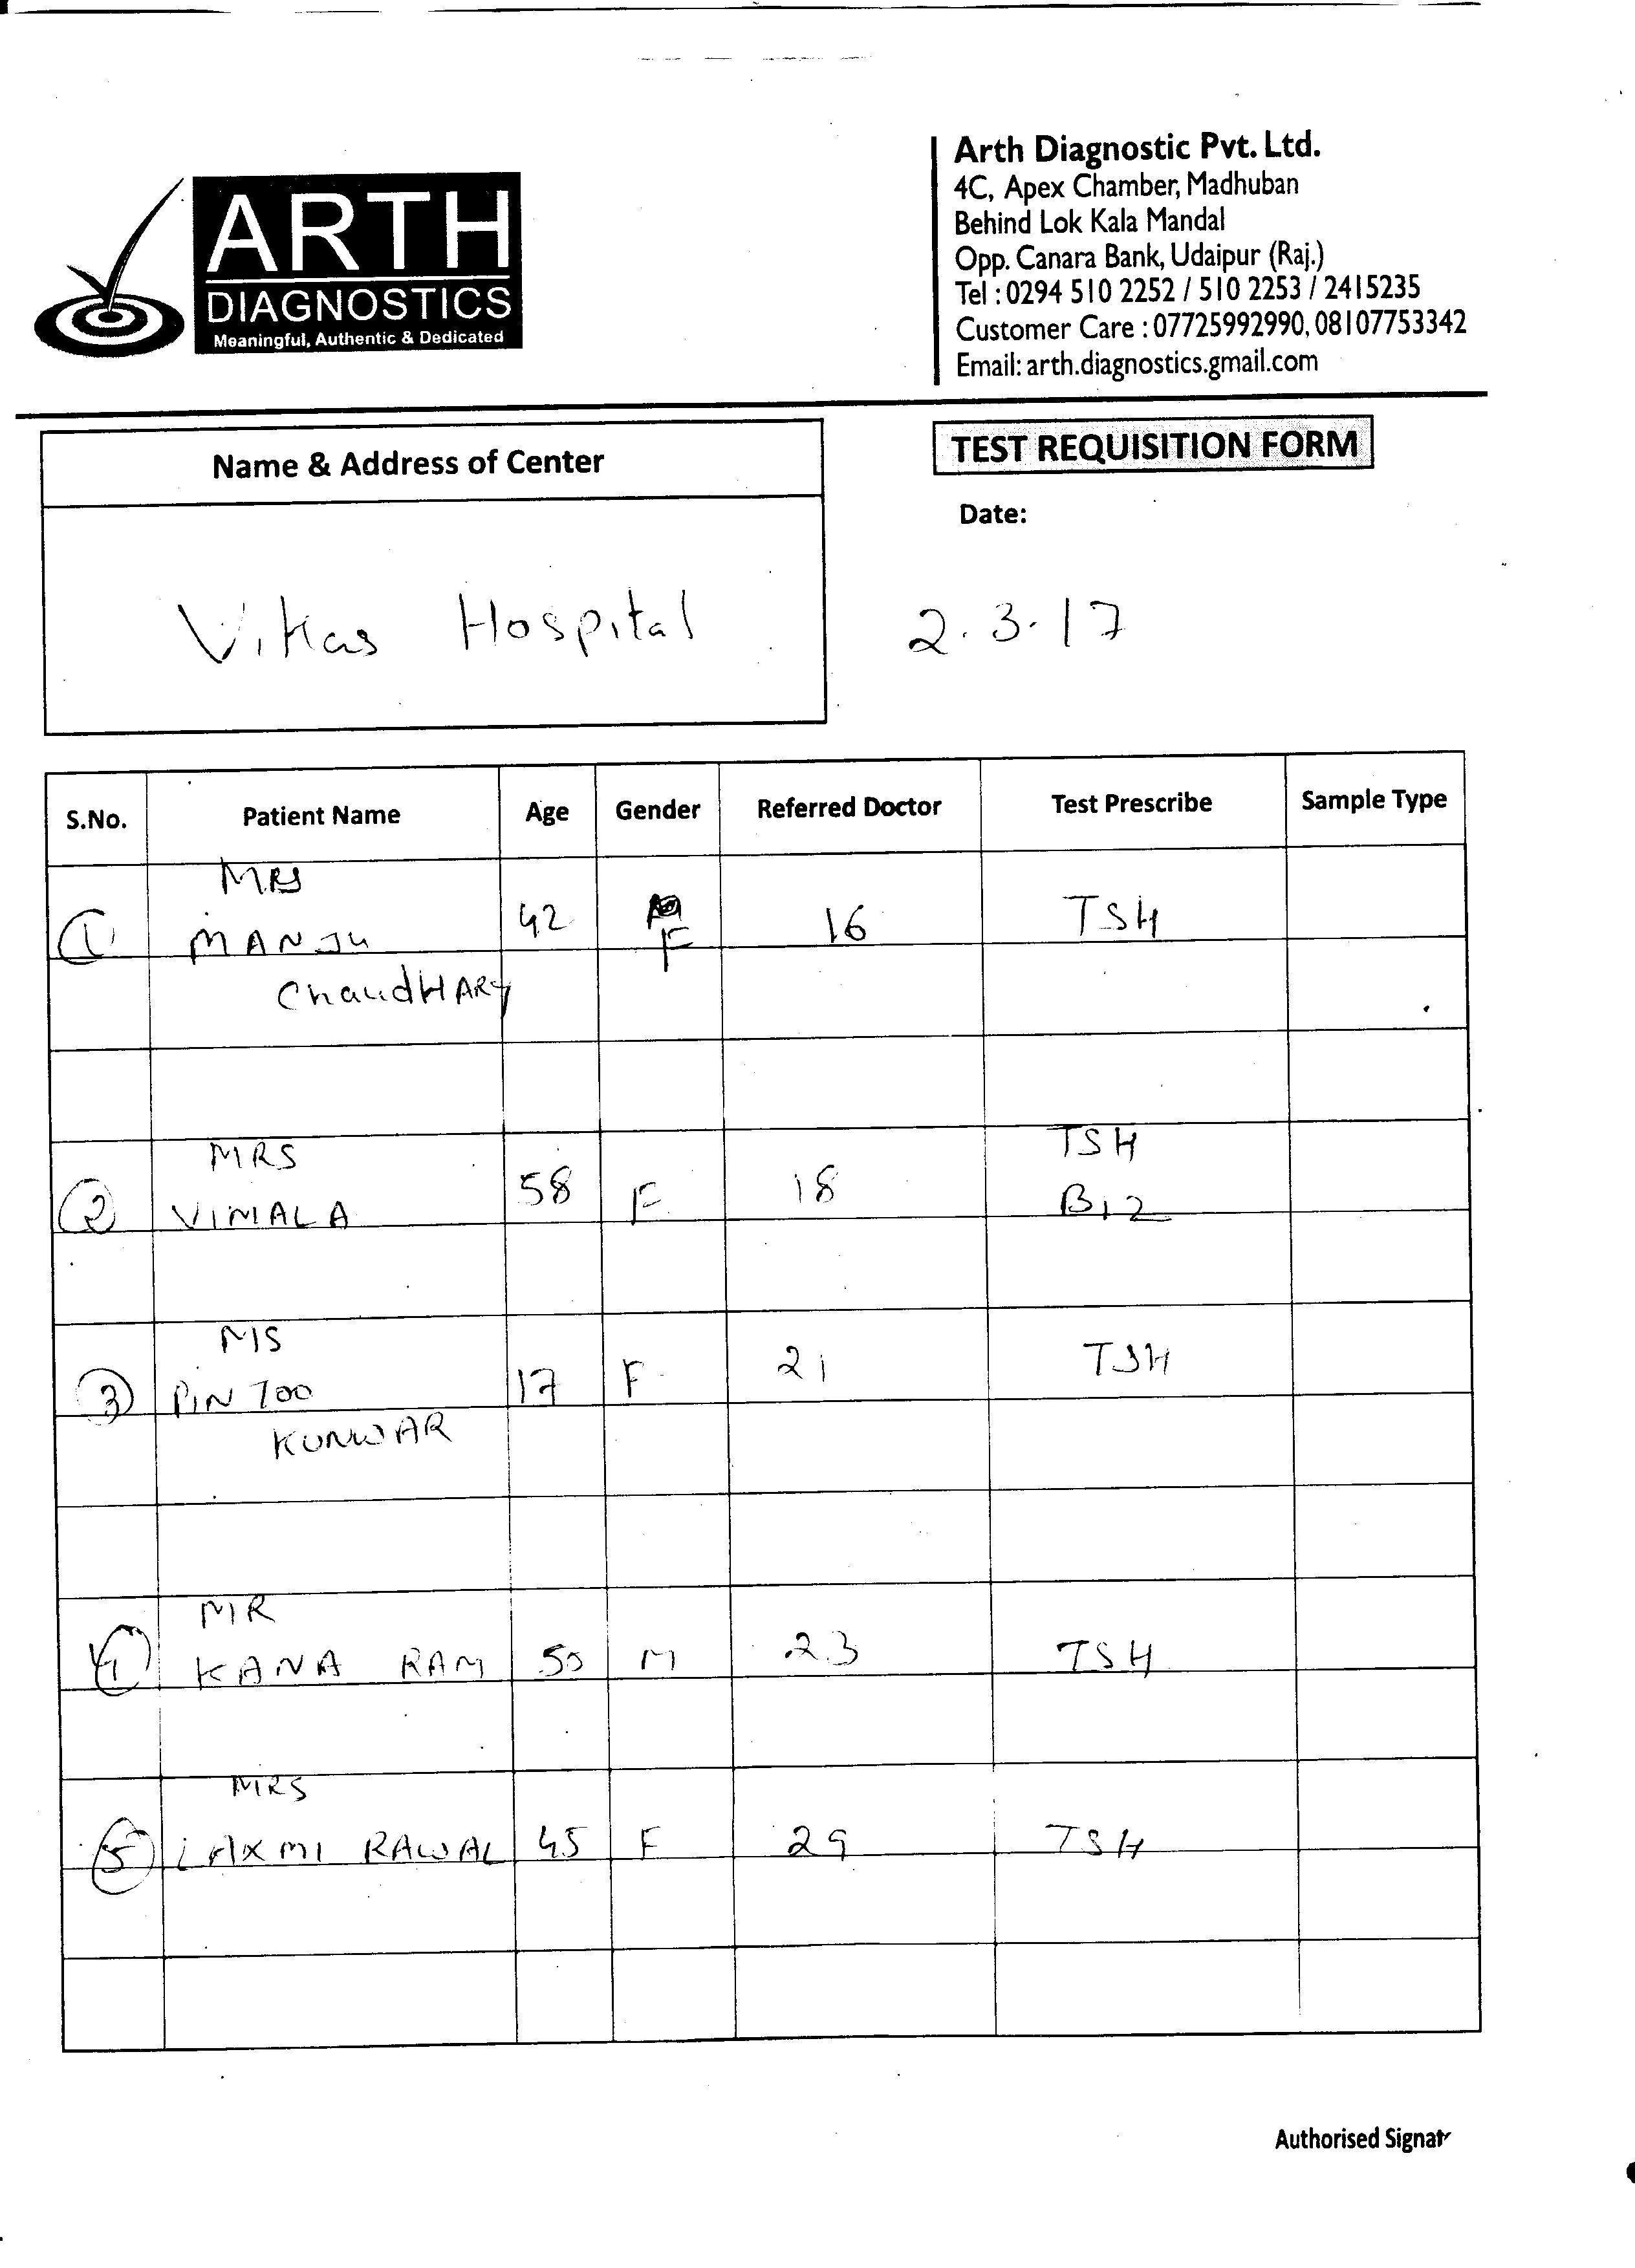 ARTH
DIAGNOSTICS
Meaningful, Authentic & Dedicated
Arth Diagnostic Pvt. Ltd.
4C, Apex Chamber, Madhuban
Behind Lok Kala Mandal
Opp. Canara Bank, Udaipur (Raj.)
Tel : 0294 510 2252 / 510 2253 / 2415235
Customer Care : 07725992990, 08107753342
Email: arth.diagnostics.gmail.com
Name & Address of Center
TEST REQUISITION FORM
Date:
Vikas Hospital
2.3.17
S.No. Patient Name Age Gender Referred Doctor Test Prescribe Sample Type
MRS
1 MANJU 42 F 16 TSH
ChaudHARY
MRS TSH
2 VIMALA 58 F 18 B12
MS
3 PINTOO 17 F 21 TSH
KUNWAR
MR
4 KANA RAM 50 M 23 TSH
MRS
5 LAXMI RAWAL 45 F 29 TSH
Authorised Signat